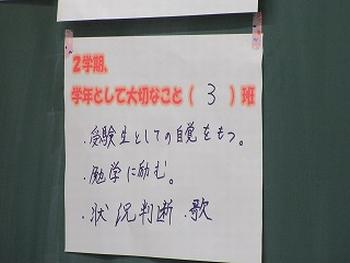 2学期、
学年として大切なこと(3)班
・受験生としての自覚をもつ。
・勉学に励む。
・状況判断・歌